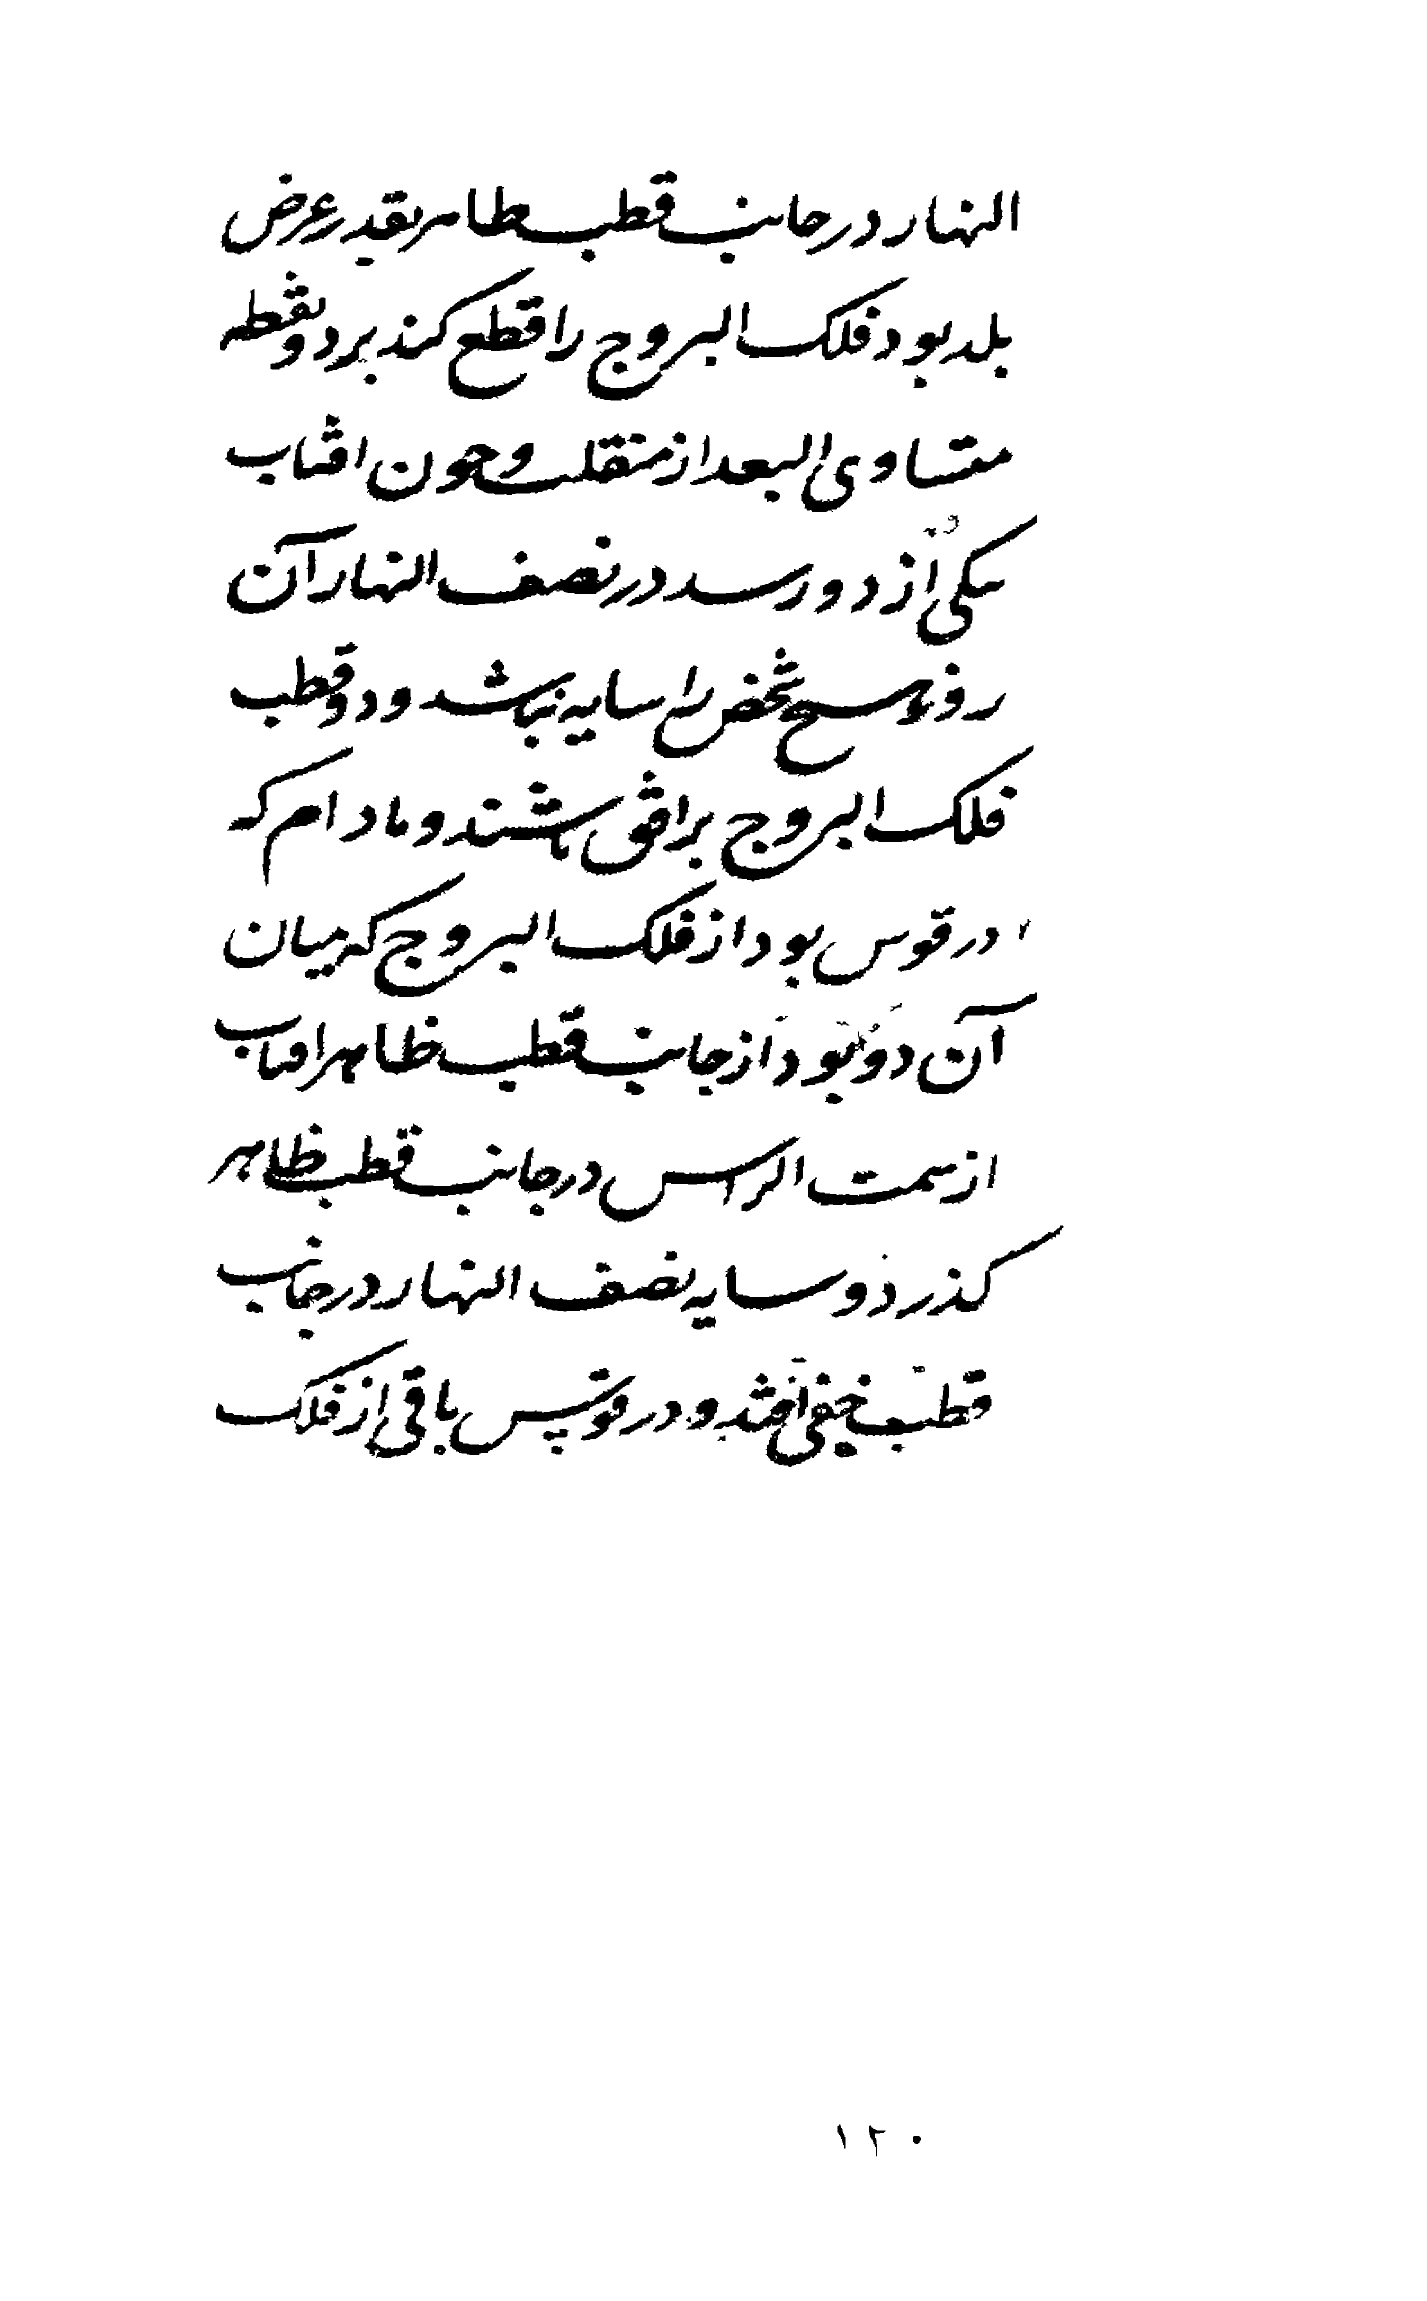 النهار در جانب قطب ظاهر بقدر عرض
بلد بود فلک البروج را قطع کند بر دو نقطه
متساوی البعد از منقلب و چون افتاب
بیکی از دو رسد در نصف النهار آن
روز هیچ شخص را سایه نباشد و دو قطب
فلک البروج بر افق باشند و مادام که
در قوس بود از فلک البروج که میان
آن دو بود از جانب قطب ظاهر افتاب
از سمت الراس در جانب قطب ظاهر
کذرد و سایه نصف النهار در جانب
قطب خفی افتد و در قوس باقی از فلک
۱۲۰